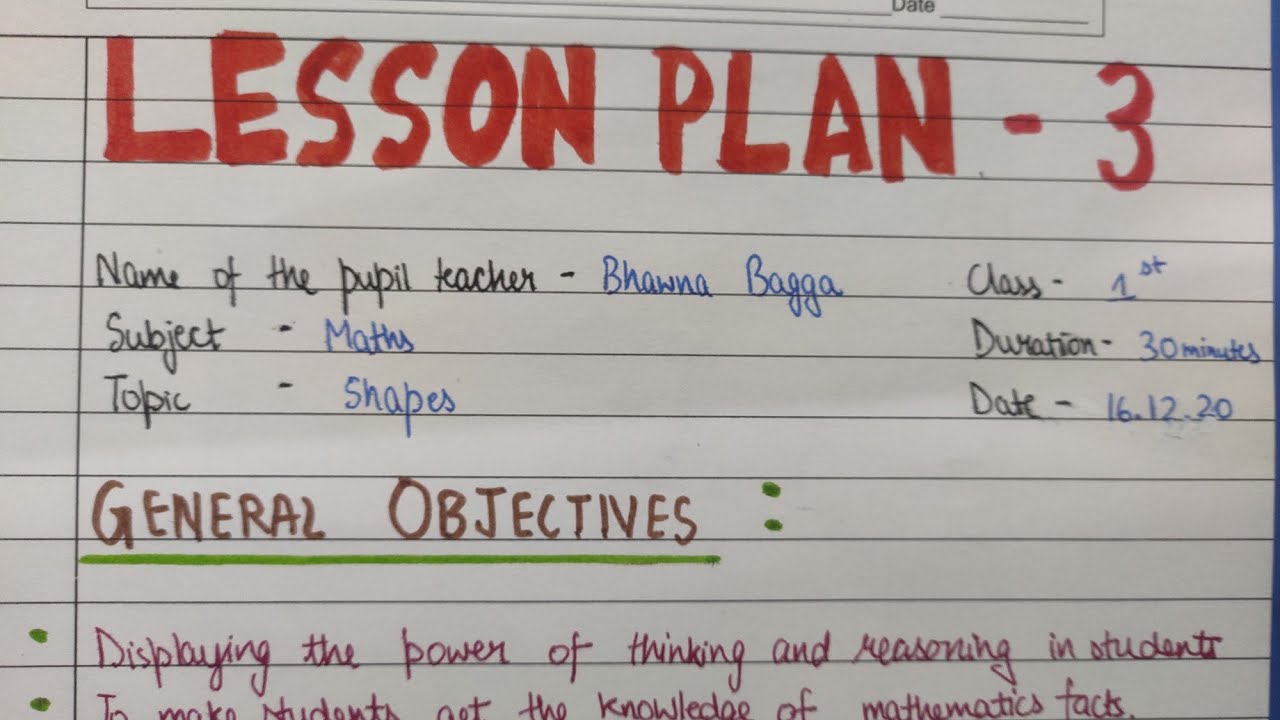 Date
LESSON PLAN - 3
Name of the pupil teacher - Bhawna Bagga Class - 1st
Subject - Maths Duration - 30 minutes
Topic - Shapes Date - 16.12.20
GENERAL OBJECTIVES :
• Displaying the power of thinking and reasoning in students
• To make students get the knowledge of mathematics facts.